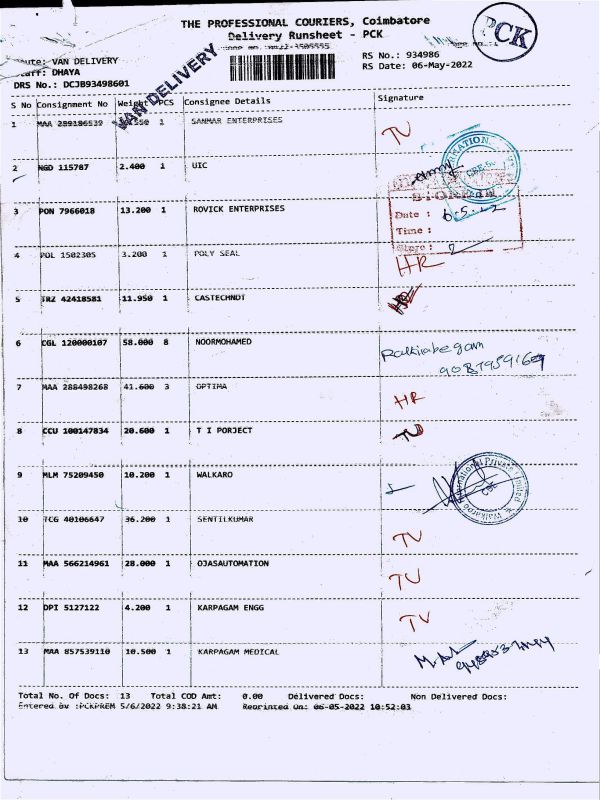 THE PROFESSIONAL COURIERS, Coimbatore
Delivery Runsheet - PCK
PCK
VAN DELIVERY
Route: VAN DELIVERY
Staff: DHAYA
DRS No.: DCJB93498601
RS No.: 934986
RS Date: 06-May-2022
S No Consignment No Weight PCS Consignee Details Signature
1 MAA 289186539 1 SANMAR ENTERPRISES TV
2 NGD 115787 2.400 1 UIC
3 PON 7966018 13.200 1 ROVICK ENTERPRISES
Date :
Time :
Store :
4 POL 1502305 3.200 1 POLY SEAL HR
5 TRZ 42418581 11.950 1 CASTECHNOT HR
6 CGL 120000107 58.000 8 NOORMOHAMED
7 MAA 288498268 41.600 3 OPTIMA HR
8 CCU 100147834 20.600 1 T I PORJECT
9 MLM 75209450 10.200 1 WALKARO
10 TCG 40106647 36.200 1 SENTILKUMAR TV
11 MAA 566214961 28.000 1 OJASAUTOMATION TV
12 DPI 5127122 4.200 1 KARPAGAM ENGG TV
13 MAA 857539110 10.500 1 KARPAGAM MEDICAL
Total No. Of Docs: 13 Total COD Amt: 0.00 Delivered Docs: Non Delivered Docs:
Entered By :PCKPREM 5/6/2022 9:38:21 AM Reprinted On: 06-05-2022 10:52:03